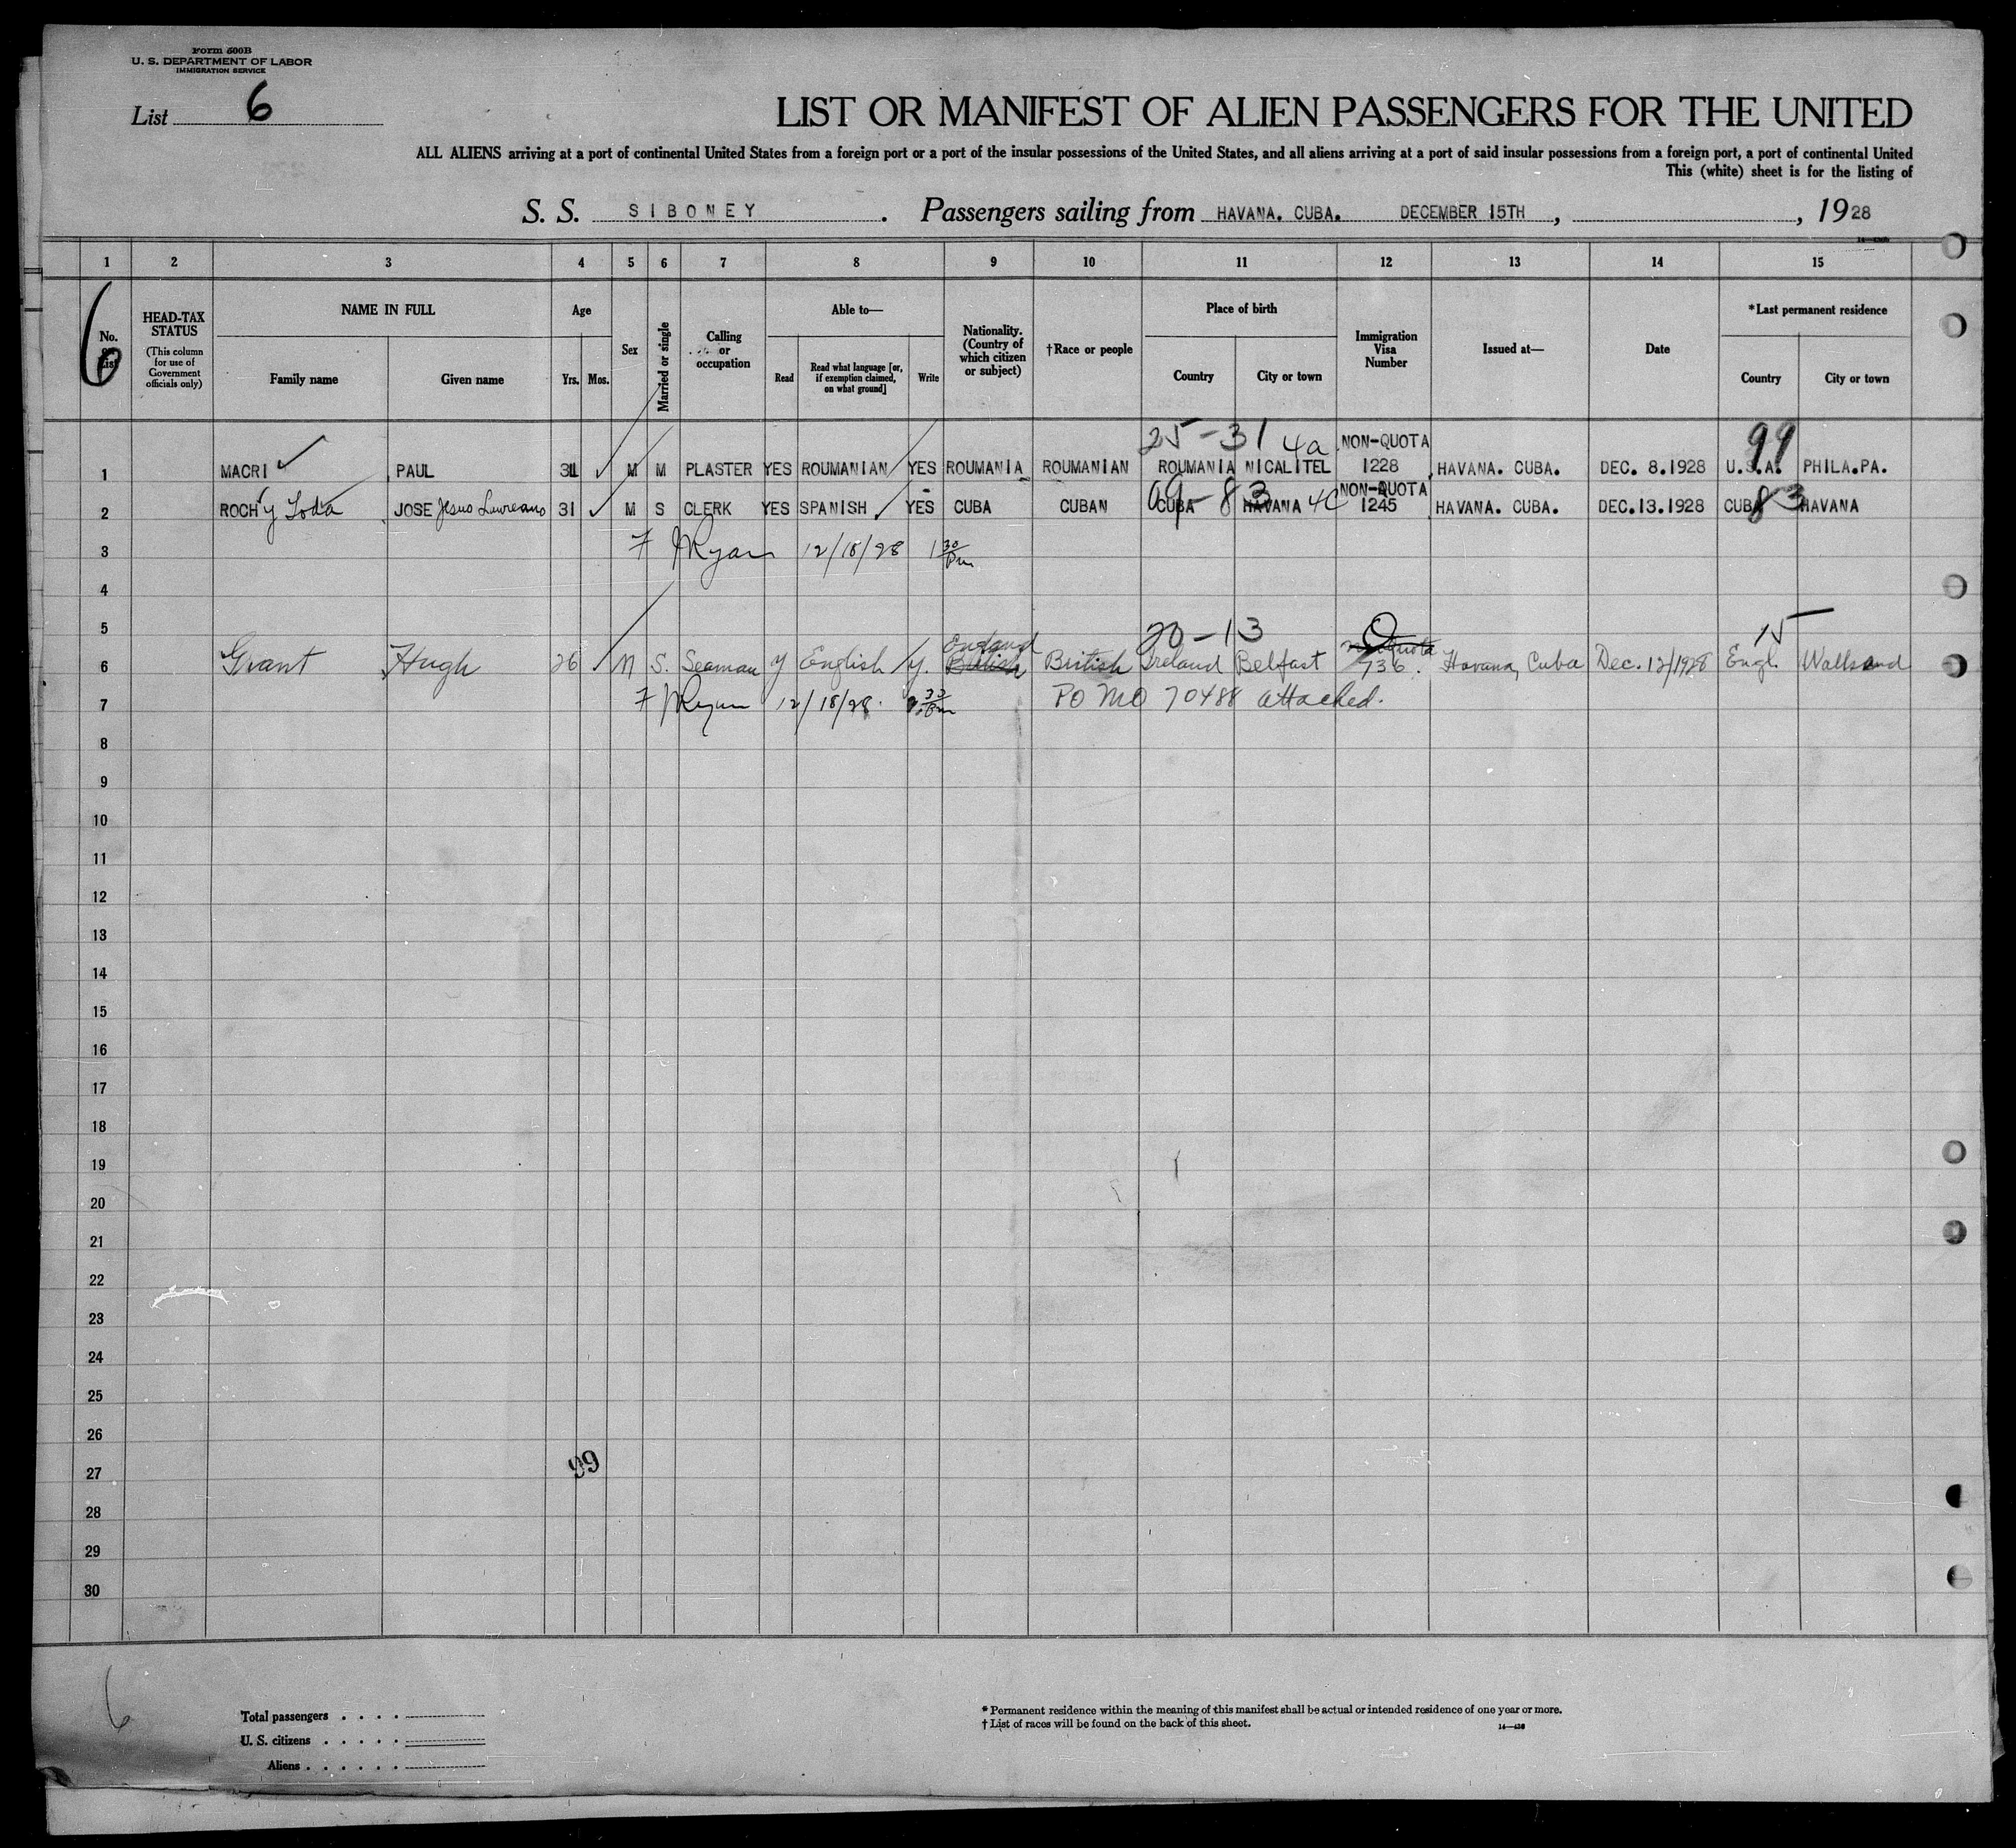 Form 500B
U. S. DEPARTMENT OF LABOR
IMMIGRATION SERVICE
List 6
LIST OR MANIFEST OF ALIEN PASSENGERS FOR THE UNITED
ALL ALIENS arriving at a port of continental United States from a foreign port or a port of the insular possessions of the United States, and all aliens arriving at a port of said insular possessions from a foreign port, a port of continental United
This (white) sheet is for the listing of
S. S. SIBONEY . Passengers sailing from HAVANA. CUBA. DECEMBER 15TH , , 1928
1 2 3 4 5 6 7 8 9 10 11 12 13 14 15
6
No. HEAD-TAX STATUS (This column for use of Government officials only) NAME IN FULL Family name Given name Age Yrs. Mos. Sex Married or single Calling or occupation Able to— Read Read what language [or, if exemption claimed, on what ground] Write Nationality. (Country of which citizen or subject) †Race or people Place of birth Country City or town Immigration Visa Number Issued at— Date *Last permanent residence Country City or town
25-31 4a NON-QUOTA 99
1 MACRI PAUL 31 M M PLASTER YES ROUMANIAN YES ROUMANIA ROUMANIAN ROUMANIA NICALITEL 1228 HAVANA. CUBA. DEC. 8.1928 U.S.A. PHILA.PA.
83 NON-QUOTA 83
2 ROCH y Toda JOSE Jesus Laureano 31 M S CLERK YES SPANISH YES CUBA CUBAN CUBA HAVANA 4C 1245 HAVANA. CUBA. DEC.13.1928 CUBA HAVANA
3 F Ryan 12/18/28 1 30 Pm
4
5 20-13 15
England
6 Grant Hugh 26 M S. Seaman y English y. British British Ireland Belfast 736. Havana, Cuba Dec. 12/1928 Engl. Wallsend
7 F Ryan 12/18/28. PO MO 70488 attached.
8
9
10
11
12
13
14
15
16
17
18
19
20
21
22
23
24
25
26
27 99
28
29
30
6
Total passengers . . . .
U. S. citizens . . . . .
Aliens . . . . . .
* Permanent residence within the meaning of this manifest shall be actual or intended residence of one year or more.
† List of races will be found on the back of this sheet.